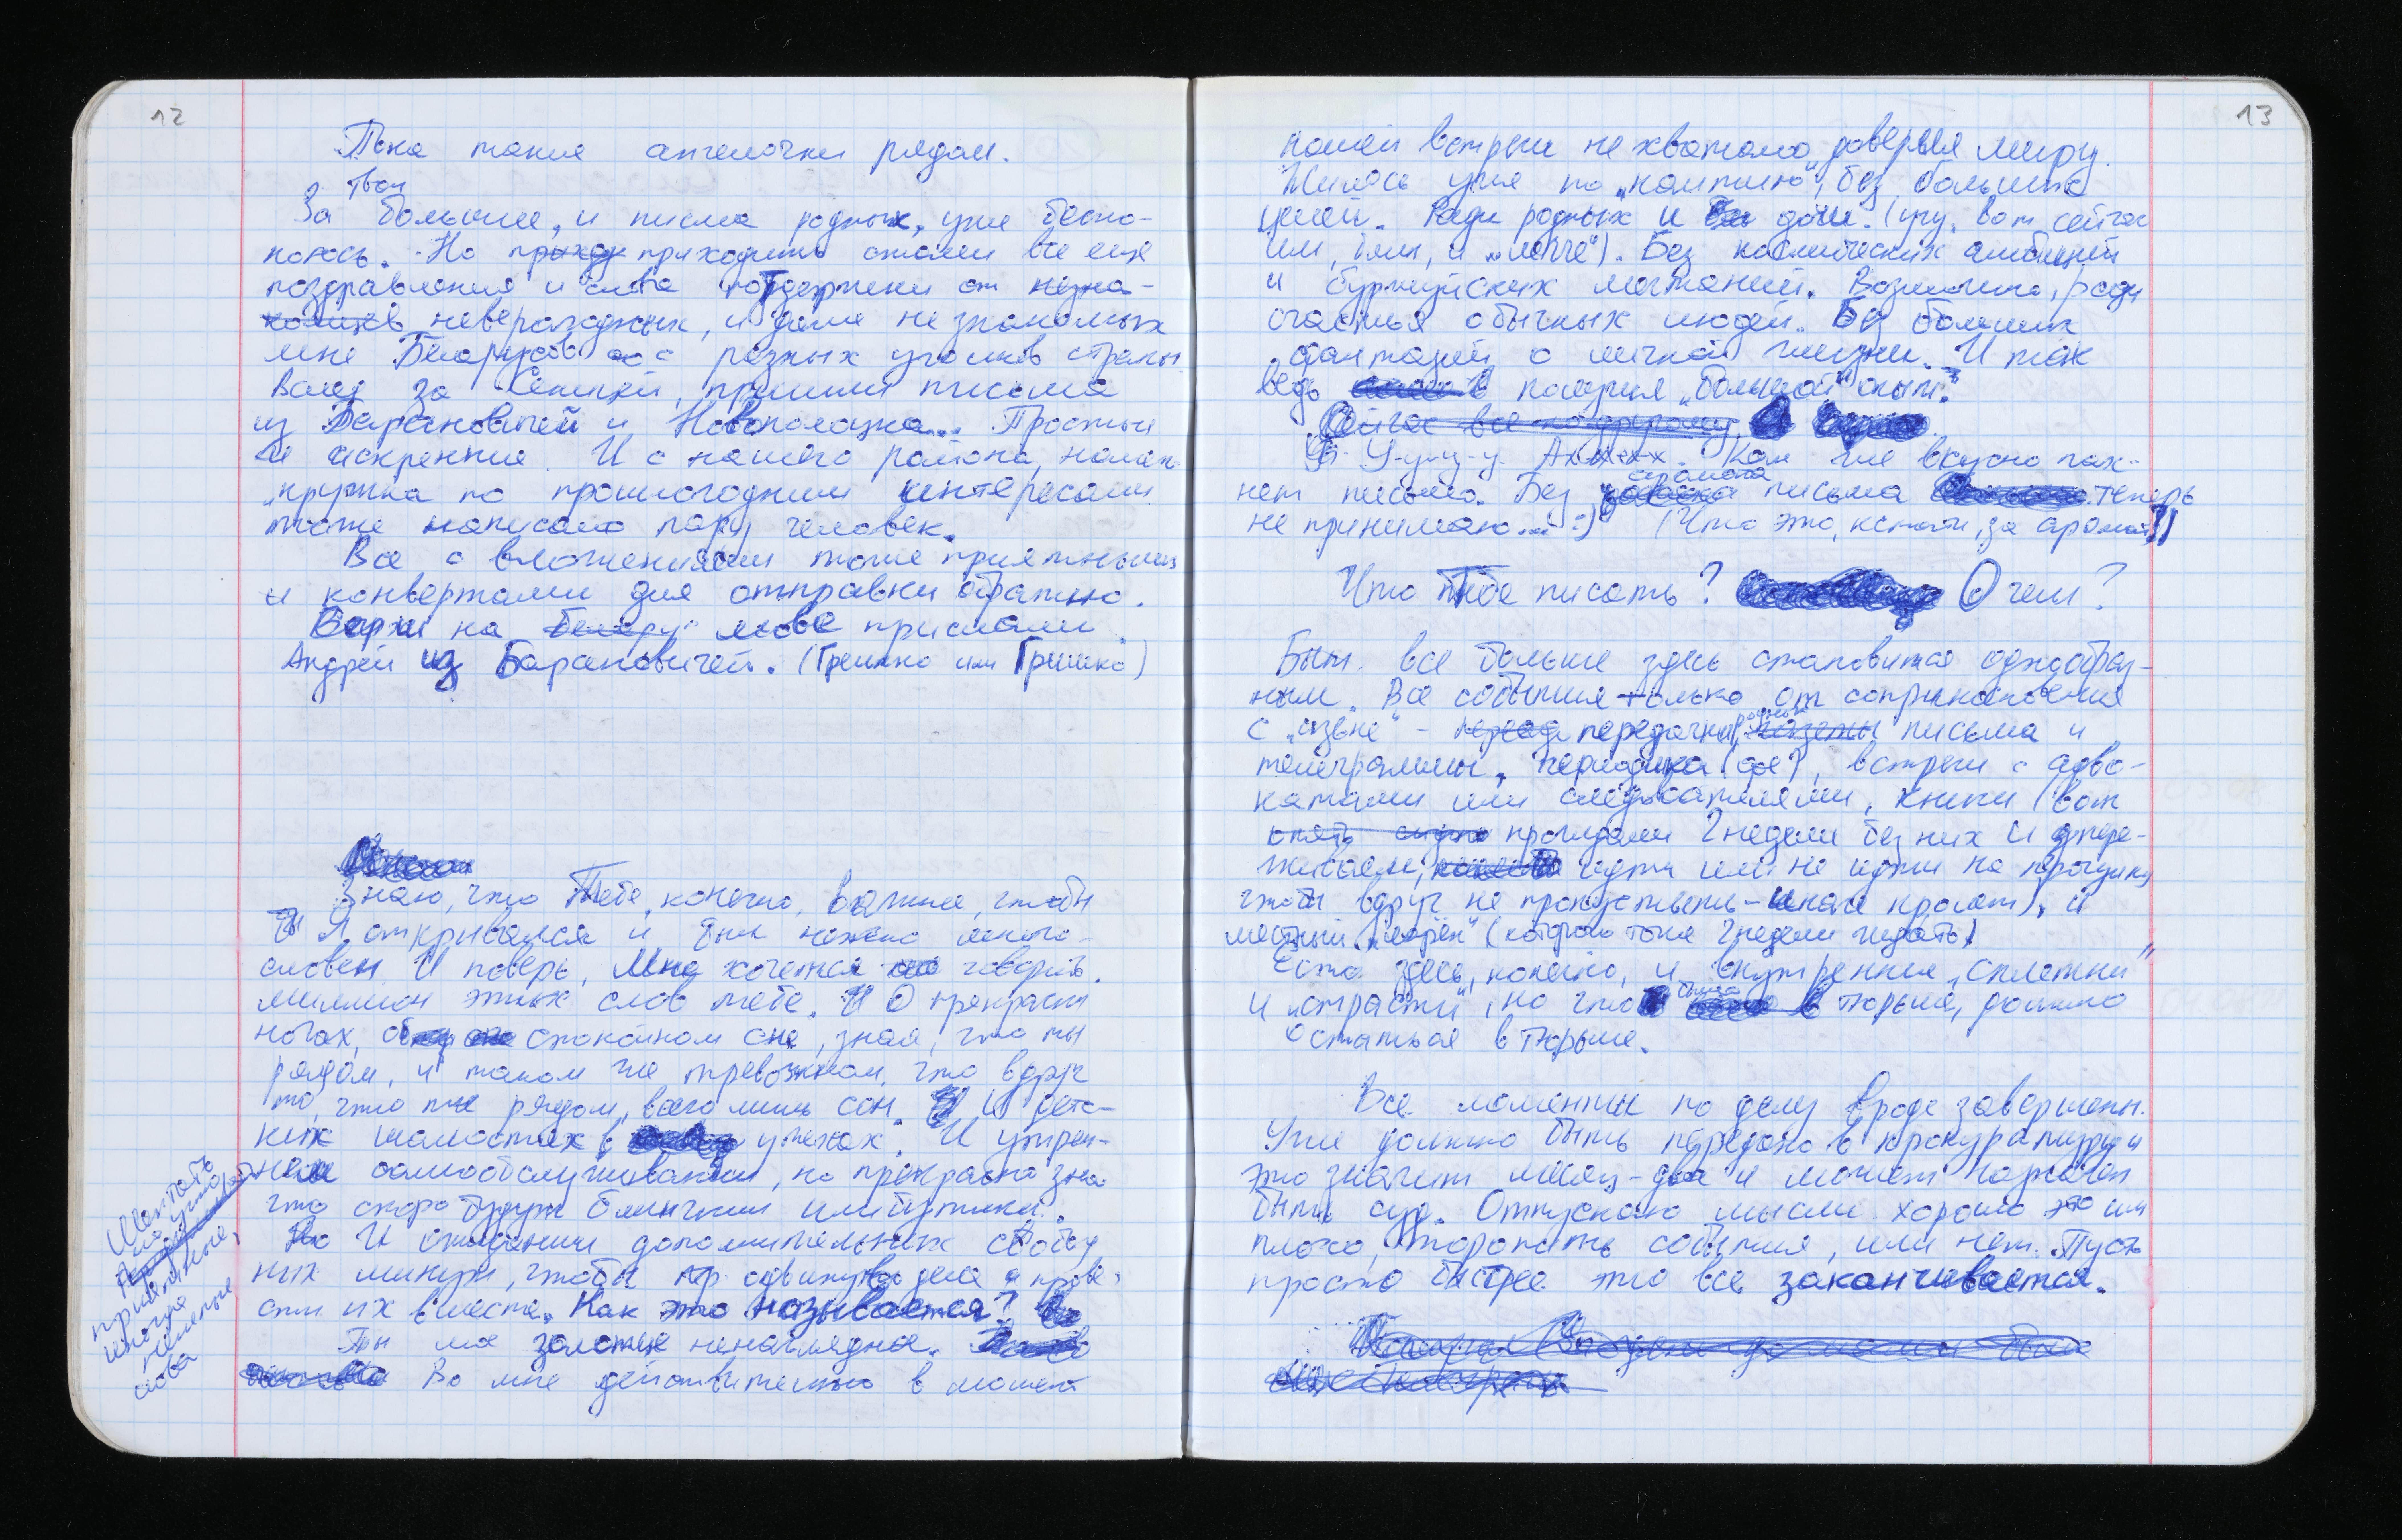 12
Пока такие ангелочки рядом.
твои
За больше, и писма родных, уже беспо-
коюсь. Но приход приходить стали все еще
поздравления и слова поддержки от незна-
комцев невераходных, и даже не знакомых
мне Беларусов с разных уголков страны.
Вслед за Сеницей, пришли письма
из Барановичей и Новополоцка... Простые
и искренние. И с нашего района, нашего
"кружка по прошлогодним интересам
тоже написало пару человек.
Все с вложениями тоже приятными
и конвертами для отправки обратно.
Вершы на белару мове прислали
Андрей из Барановичей. (Грешко или Гришко)
Знаю, что Тебе, конечно, важнее, чтобы
Я открывался и был нежно много-
словен. И поверь, мне хочется говорить
миллион этих слов тебе. И О прекрасн
ночах, спокойном сне, зная, что ты
рядом, и таком же тревожном, что вдруг
то, что ты рядом, всего лишь сон. И детс-
ких шалостях в ужехах. И утрен-
нем самообслуживании, но прекрасно зная
что скоро будут блинчики или бутики.
Но И ожидании дополнительных свобод
ных минут, чтобы пр одвинув дела и прове-
сти их вместе. Как это называется?
Ты моя золотце ненаглядная.
Во мне действительно в момент
Шептать
на ушко
приятные,
иногда
пошлые
слова
13
нашей встречи не хватало "доверия миру.
Жилось уже по "наитию", без больших
целей. Ради родных и дочи. (угу, вот сейчас
им, блин, и "легче"). Без космических амбиций
и буржуйских мечтаний. Возможно, ради
счастья обычных людей. Без больших
фантазий о личной жизни. И так
ведь получил "большой" опыт.
Сейчас все по другому.
У-у-у-у. Ах-х-х-х. Как же вкусно пах-
аромата
нет письмо. Без запаха письма теперь
не принимаю... :) (Что это, кстати, за аромат?)
Что Тебе писать? О чем?
Быт все больше здесь становится однообраз-
ным. Все события только от соприкосновения
родных
с "извне" - перед передачки, газеты письма и
телеграммы, периодика (где?), встречи с адво-
катами или следователями, книги (вот
опять прождали 2 недели без них и пере-
живаем, идти или не идти на прогулку
чтобы вдруг не пропустить - иначе пролет), и
местный "ларёк" (которого тоже 2 недели ждать)
Есть здесь, конечно, и внутренние "сплетни"
было
и "страсти", но что в тюрьме, должно
остаться в тюрьме.
Все моменты по делу вроде завершены.
Уже должно быть передано в прокуратуру и
это значит месяц-два и может назначен
быть суд. Отпускаю мысли хорошо это или
плохо, торопить события, или нет. Пусть
просто быстрее это все заканчивается.